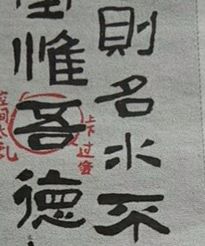 則名水不
室惟吾德
上下过